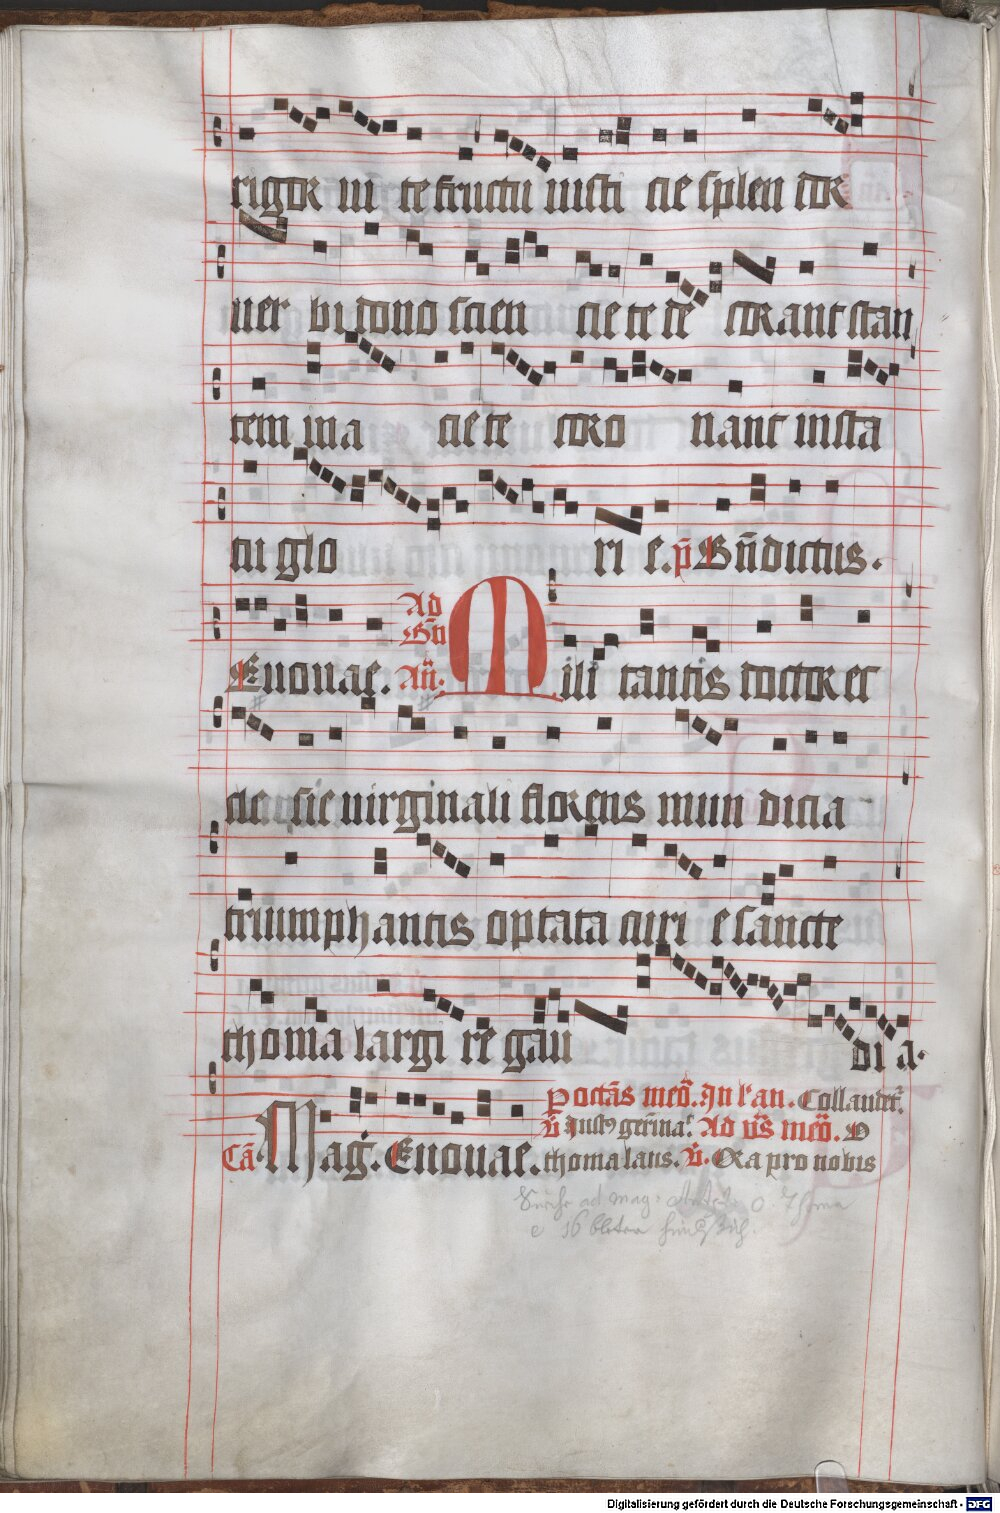 rigor iu te fructu iusti cie splen dor
uer bi dono scien cie te de corant stan
tem in a cie te coro nant in sta
tu glo ri e. p̄ Bn̄dictus.
Ad
Bn̄
Euouae. Añ. Mili tantis doctor ec
cle sie uirginali florens mun dicia
triumphantis optata curi e sancte
thoma largi re gau di a.
p octas meo. In l'an. Collaudet.
v̄ Iust9 germa. Ad vs meo. O
Cā Mag. Euouae. thoma laus. v̄. Ora pro nobis
Digitalisierung gefördert durch die Deutsche Forschungsgemeinschaft - DFG